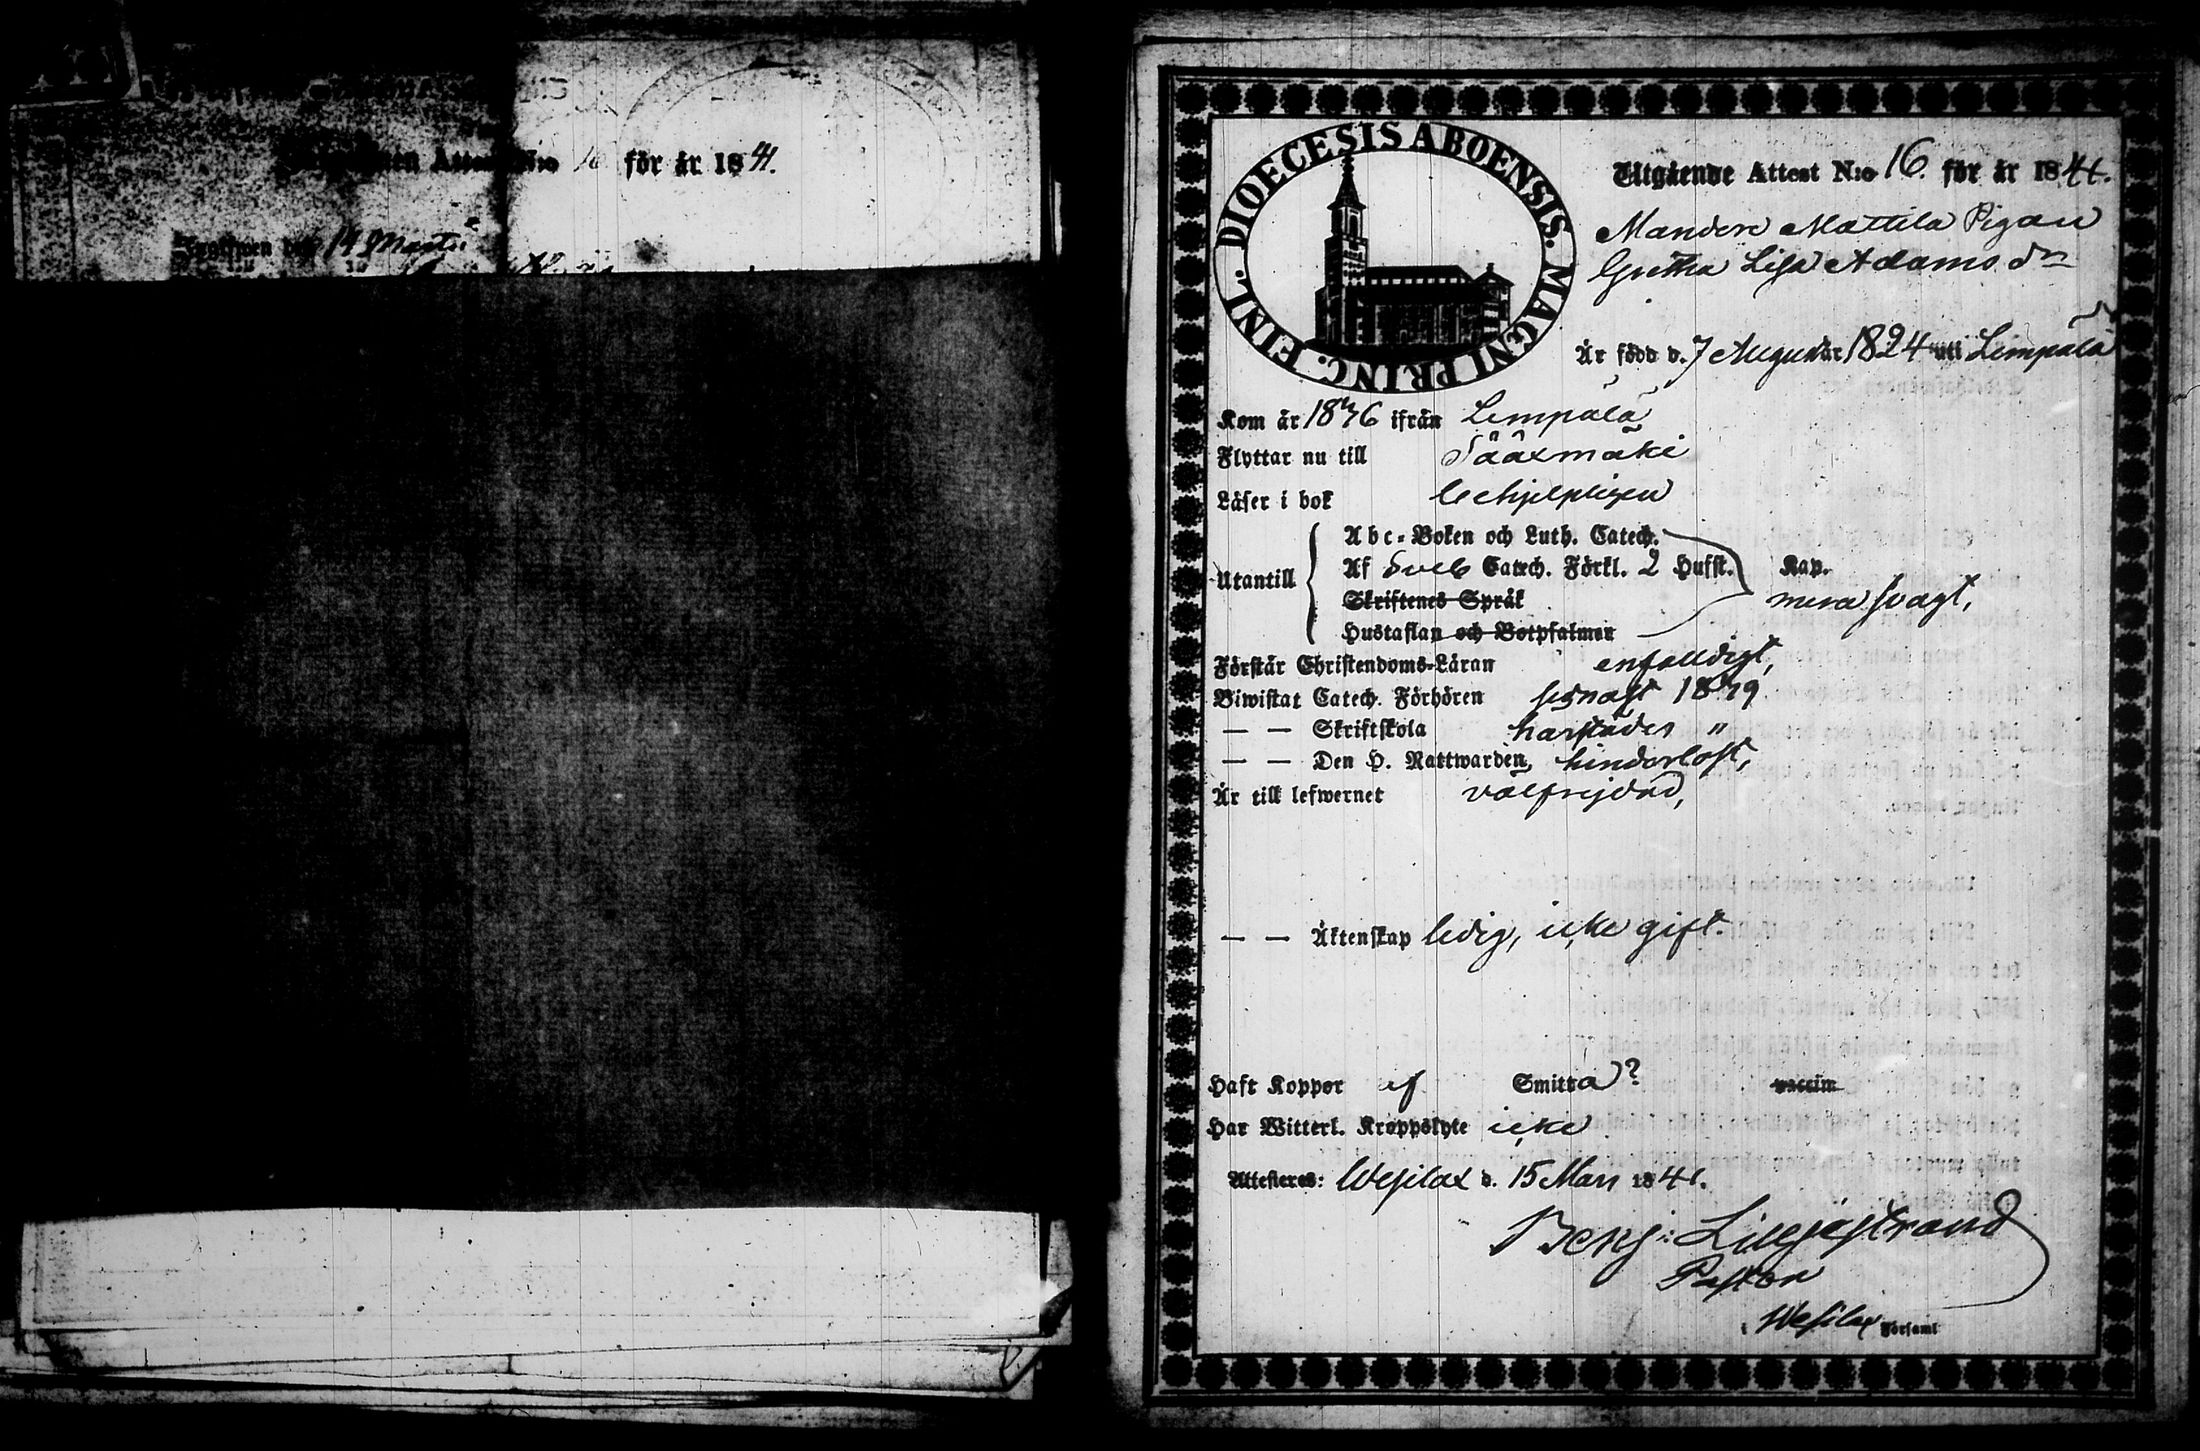 för år 1841.
14 Martii
DIOECESIS ABOENSIS. MAGNI PRINC. FINL.
Utgående Attest N:o 16. för år 1841.
Mandere Mattila Pigan
Gretha Lisa Adams dr
Är född d. 7 Augusti år 1824 uti Lempälä
Kom år 1836 ifrån Lempälä
Flyttar nu till Sääxmäki
Läser i bok behjelpligen
Utantill
Abc-Boken och Luth. Catech.
Af Sveb Catech. Förkl. 2 Hufst. Kap.
Skriftenes Språk mera svagt,
Hustaflan och Botpsalmer
Förstår Christendoms-Läran enfalldigt,
Biwistat Catech. Förhören sednast 1839
— — Skriftskola "
— — Den H. Nattwarden, hinderlöst,
Är till lefwernet välfrejdad,
— — Äktenskap ledig, icke gift.
Haft Koppor ej Smitta? vaccin
Har Witterl. Kroppslyte icke
Attesteras: Wesilax d. 15 Mars 1841.
Benj: Lilljestrand
Pastor
i Wesilax Församl